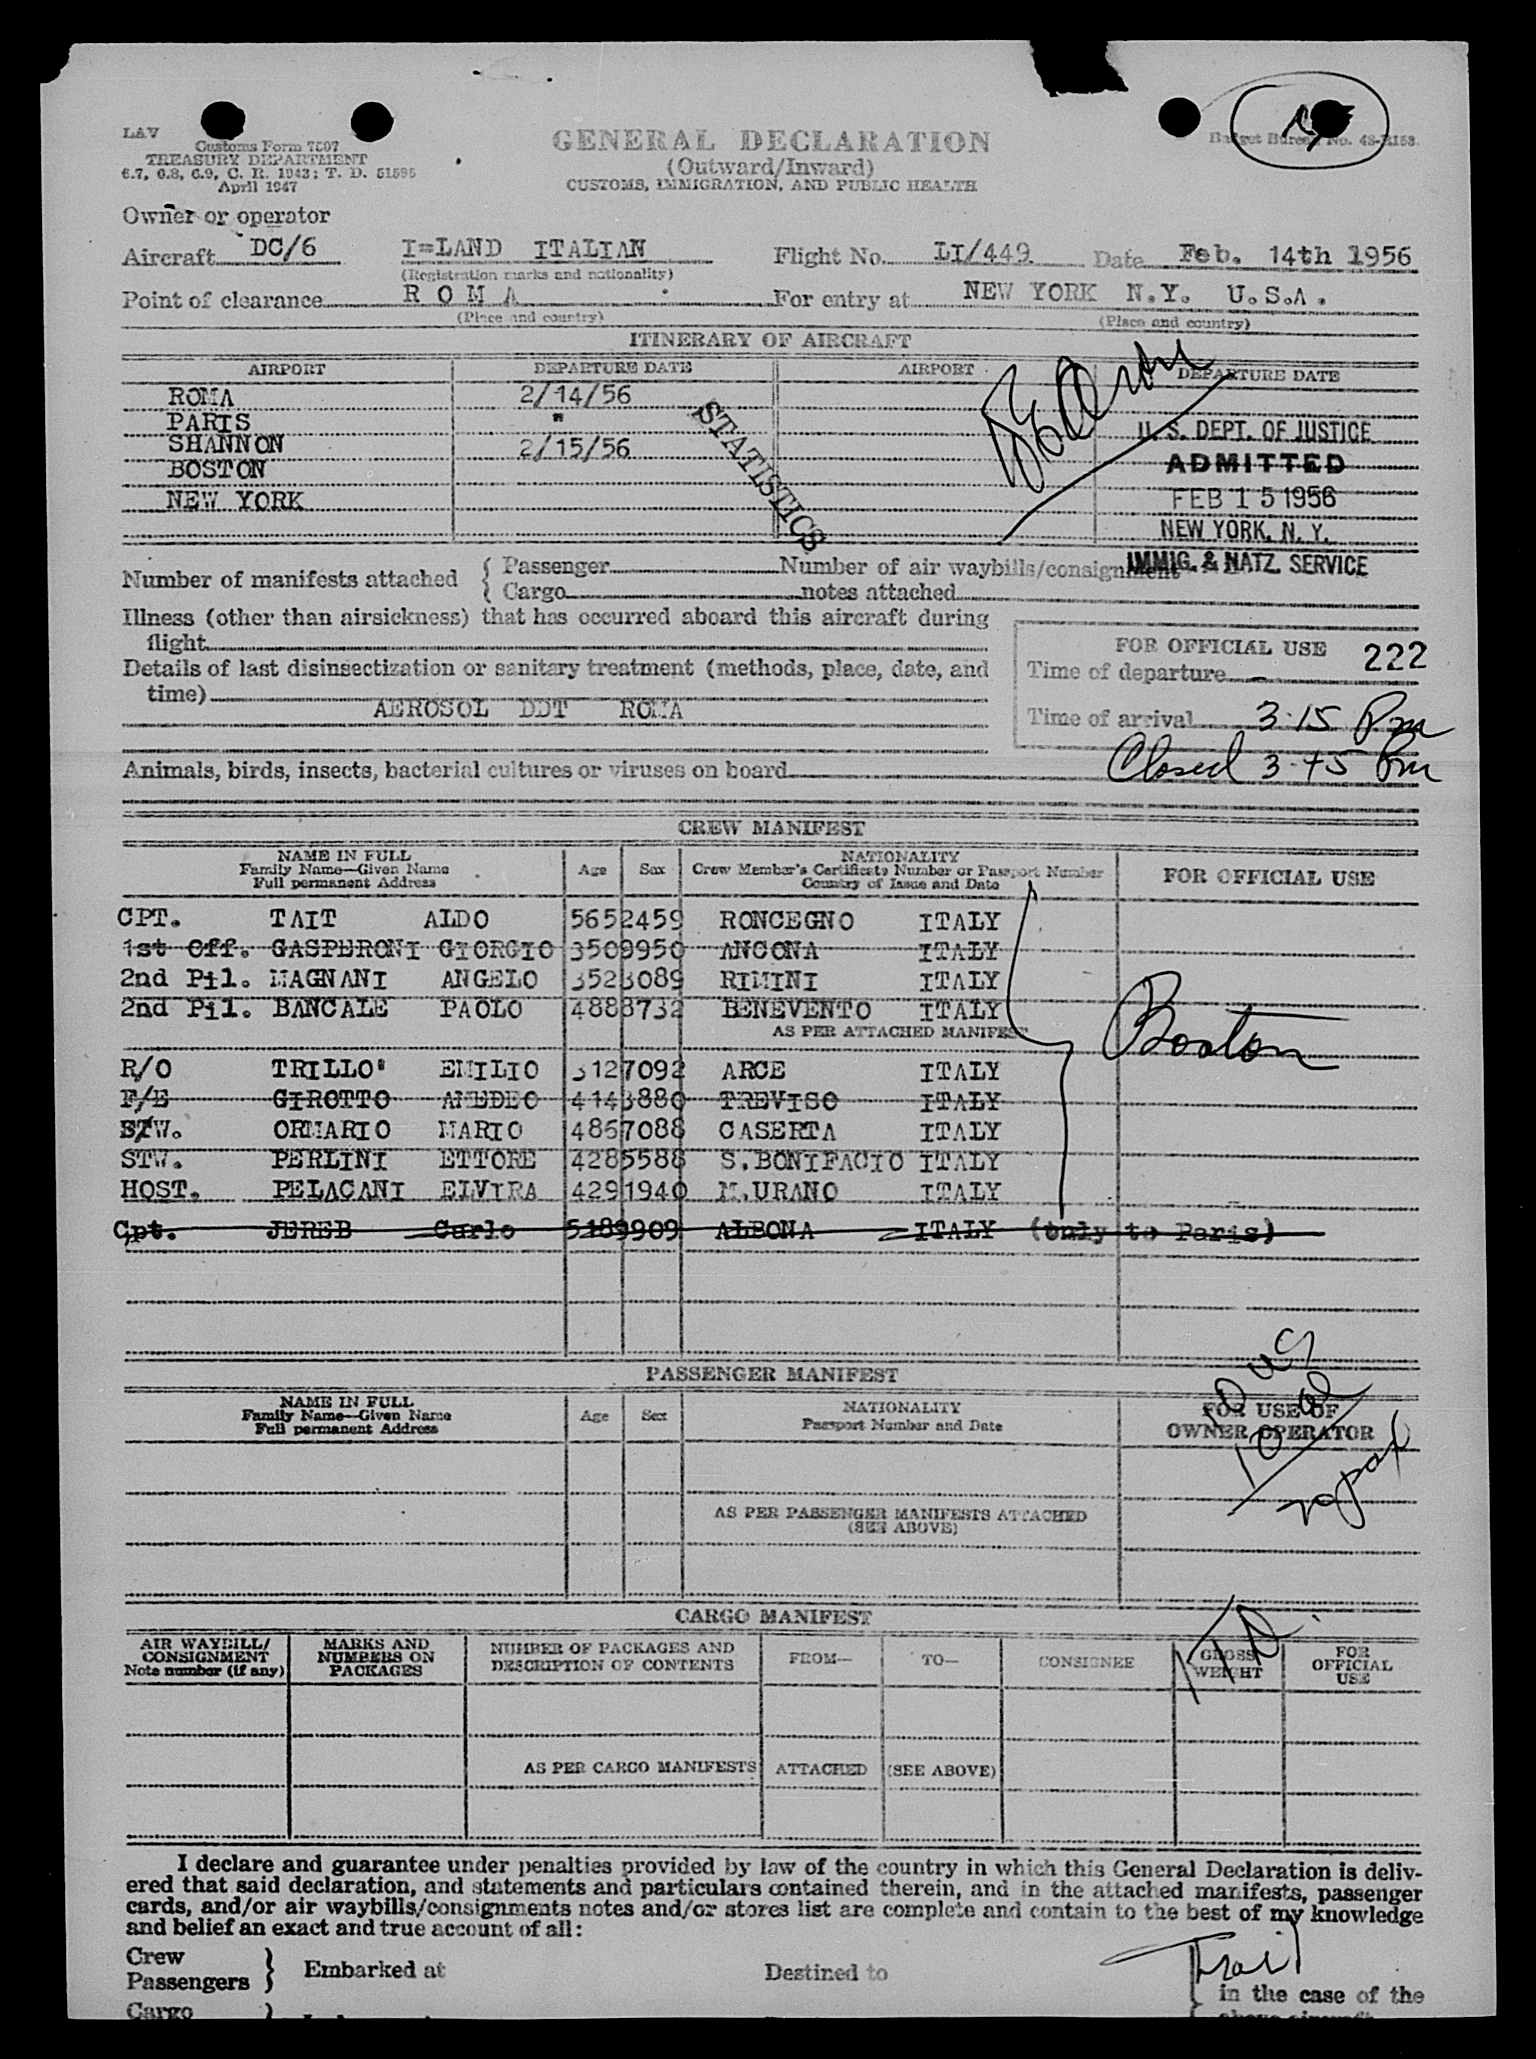 LAV
Customs Form 7507
TREASURY DEPARTMENT
6.7, 6.8, 6.9, C. R. 1943; T. D. 51595
April 1947
GENERAL DECLARATION
(Outward/Inward)
CUSTOMS, IMMIGRATION, AND PUBLIC HEALTH
Budget Bureau No. 48-R153.
Owner or operator
Aircraft DC/6 I=LAND ITALIAN Flight No. LI/449 Date Feb. 14th 1956
(Registration marks and nationality)
Point of clearance R O M A For entry at NEW YORK N.Y. U.S.A.
(Place and country) (Place and country)
ITINERARY OF AIRCRAFT
AIRPORT DEPARTURE DATE AIRPORT DEPARTURE DATE
ROMA 2/14/56
PARIS "
SHANNON 2/15/56
BOSTON
NEW YORK
STATISTICS
U. S. DEPT. OF JUSTICE
ADMITTED
FEB 15 1956
NEW YORK, N. Y.
IMMIG. & NATZ. SERVICE
Number of manifests attached { Passenger Number of air waybills/consignment
{ Cargo notes attached
Illness (other than airsickness) that has occurred aboard this aircraft during
flight
Details of last disinsectization or sanitary treatment (methods, place, date, and
time)
AEROSOL DDT ROMA
FOR OFFICIAL USE 222
Time of departure -
Time of arrival 3:15 Pm
Closed 3-45 Pm
Animals, birds, insects, bacterial cultures or viruses on board
CREW MANIFEST
NAME IN FULL
Family Name—Given Name
Full permanent Address
Age Sex
NATIONALITY
Crew Member's Certificate Number or Passport Number
Country of Issue and Date
FOR OFFICIAL USE
CPT. TAIT ALDO 5652459 RONCEGNO ITALY
1st Off. GASPERONI GIORGIO 3509950 ANCONA ITALY
2nd Pil. MAGNANI ANGELO 3523089 RIMINI ITALY
2nd Pil. BANCALE PAOLO 4888732 BENEVENTO ITALY
AS PER ATTACHED MANIFEST
Boston
R/O TRILLO' EMILIO 3127092 ARCE ITALY
F/E GIROTTO AMEDEO 4143880 TREVISO ITALY
STW. ORMARIO MARIO 4867088 CASERTA ITALY
STW. PERLINI ETTORE 4285588 S.BONIFACIO ITALY
HOST. PELACANI ELVIRA 4291940 M.URANO ITALY
Cpt. JEREB Carlo 5189909 ALBONA ITALY (only to Paris)
PASSENGER MANIFEST
NAME IN FULL
Family Name—Given Name
Full permanent Address
Age Sex
NATIONALITY
Passport Number and Date
FOR USE OF
OWNER OPERATOR
10 US
10 al
20 pax
AS PER PASSENGER MANIFESTS ATTACHED
(SEE ABOVE)
CARGO MANIFEST
AIR WAYBILL/
CONSIGNMENT
Note number (if any)
MARKS AND
NUMBERS ON
PACKAGES
NUMBER OF PACKAGES AND
DESCRIPTION OF CONTENTS
FROM— TO— CONSIGNEE
GROSS
WEIGHT
FOR
OFFICIAL
USE
AS PER CARGO MANIFESTS ATTACHED (SEE ABOVE)
I declare and guarantee under penalties provided by law of the country in which this General Declaration is deliv-
ered that said declaration, and statements and particulars contained therein, and in the attached manifests, passenger
cards, and/or air waybills/consignments notes and/or stores list are complete and contain to the best of my knowledge
and belief an exact and true account of all:
Crew
Passengers } Embarked at Destined to
in the case of the
Cargo